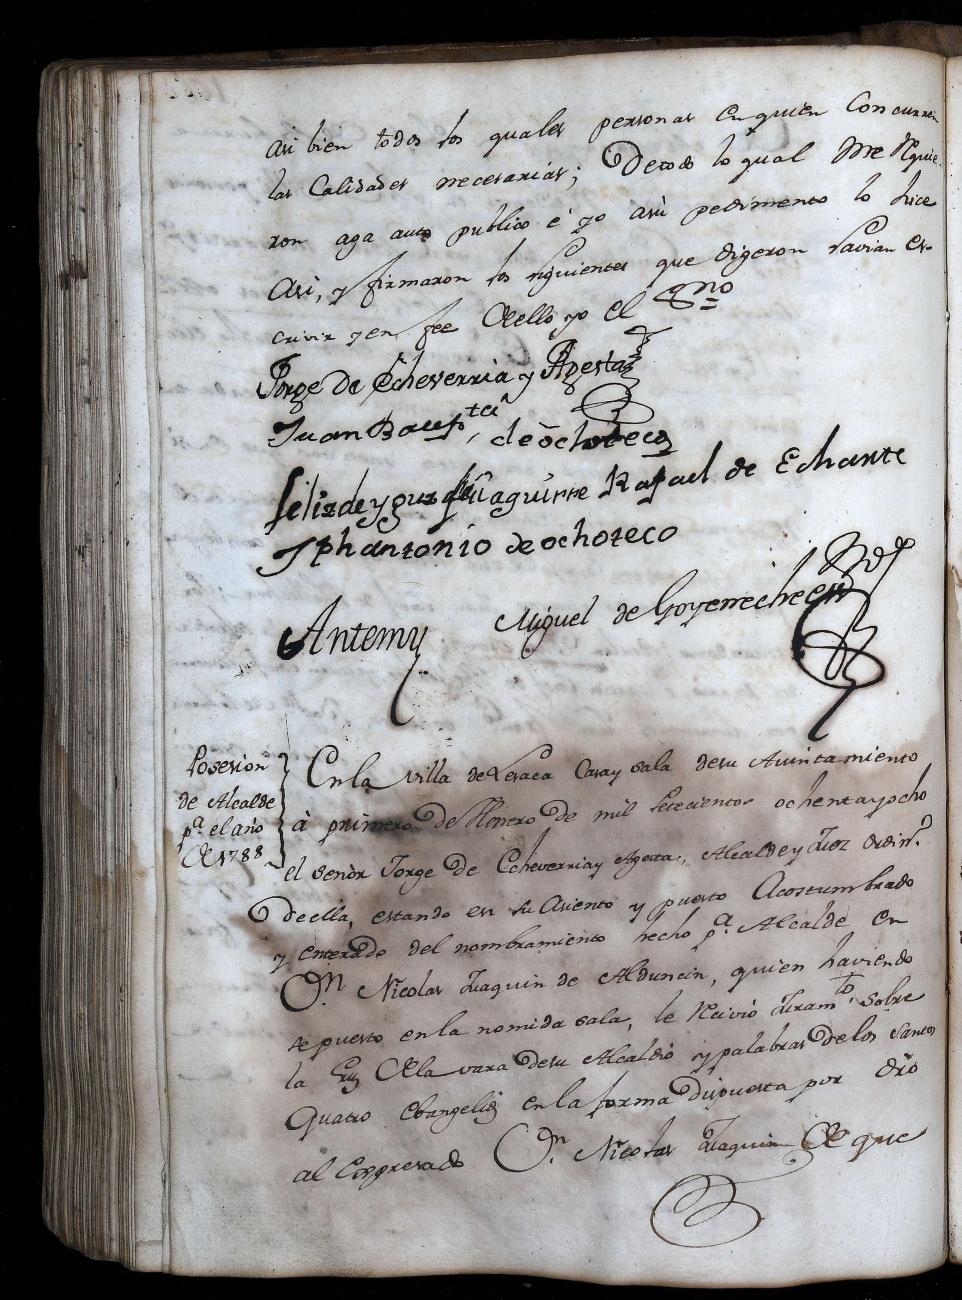 asi bien todos los quales personas en quien concurren
las Calidades necesarias; Detodo lo qual me Requie
ron aga auto publico é yo asu pedimento lo hice
Asi, y firmaron los siguientes que digeron savian es-
crivir y en fee dello yo el Sno
Jorge de Echeverria y Agesta
Juan Baup.ta de ochoteco
felizdeyguz aguirre Rafael de Echarte
Jph antonio de ochoteco
Antemy Miguel de Goyeneche
Posesion
de Alcalde
p.a el año
de 1788
En la villa de Lesaca Casa y sala desu Auintamiento
à primero de Henero de mil setecientos ochentayocho
el señor Jorge de Echeverria y Agesta, Alcalde y Juez ordin.o
De ella, estando en su Asiento y puesto Acostumbrado
y enterado del nombramiento hecho p.a Alcalde en
Dn Nicolas Joaquin de Alduncin, quien haviendo
se puesto en la nomida sala, le Recivió Juram.to sobre
la Cruz de la vara desu Alcaldia y palabras de los Santos
Quatro Ebangelios en la forma dispuesta por dro
al Expresado Dn. Nicolas Joaquin de que